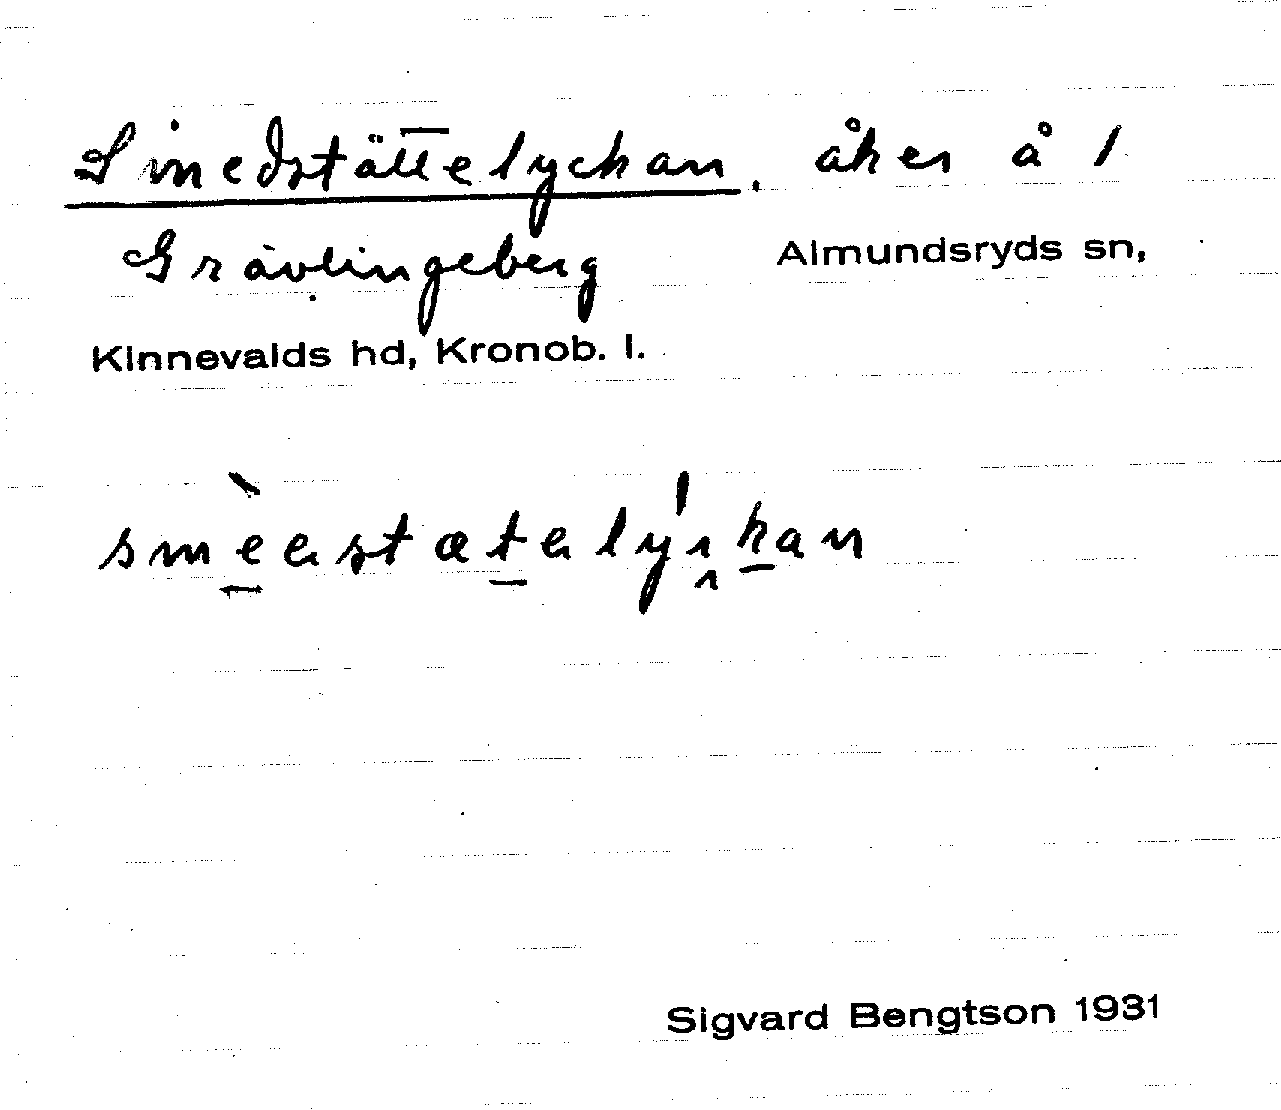 Smedstättelyckan. åker å 1
Grävlingeberg Almundsryds sn,
Kinnevalds hd, Kronob. l.
Sigvard Bengtson 1931